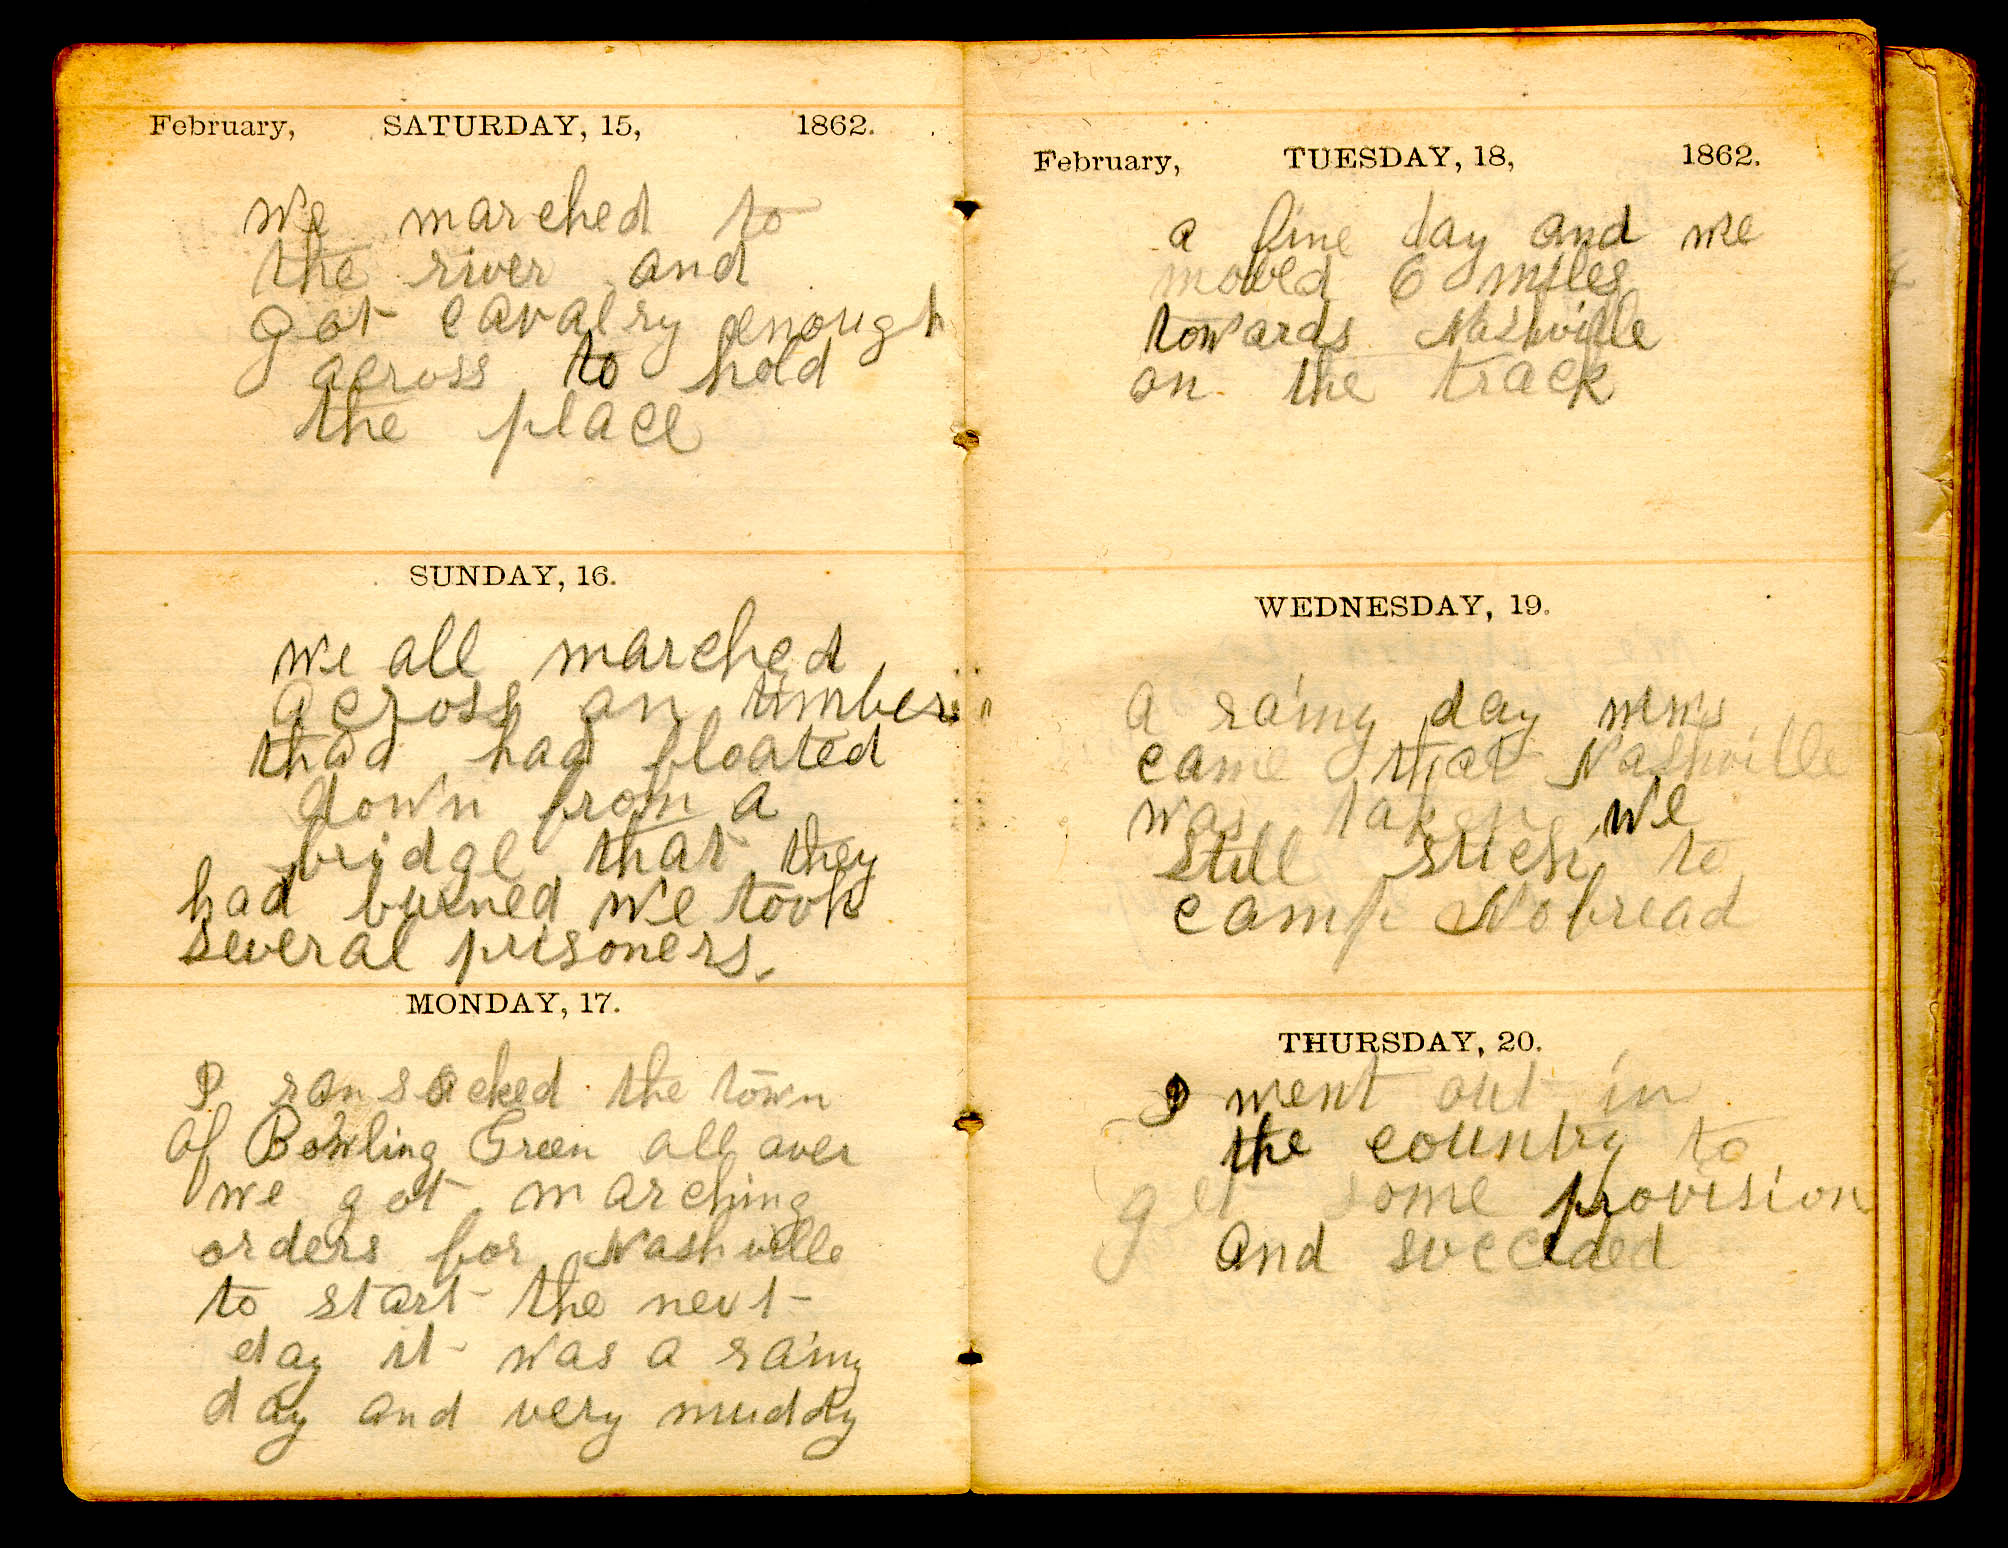 February, SATURDAY, 15, 1862.
We marched to
the river and
got cavalry enough
across to hold
the place
SUNDAY, 16.
We all marched
across on timbers
that had floated
down from a
bridge that they
had burned We took
several prisoners.
MONDAY, 17.
I ransacked the town
of Bowling Green all over
we got marching
orders for Nashville
to start the next
day it was a rainy
day and very muddy
February, TUESDAY, 18, 1862.
a fine day and we
moved 6 miles
towards Nashville
on the track
WEDNESDAY, 19.
A rainy day news
came that Nashville
was taken We
still stick to
camp Nobread
THURSDAY, 20.
I went out in
the country to
get some provision
and succeded